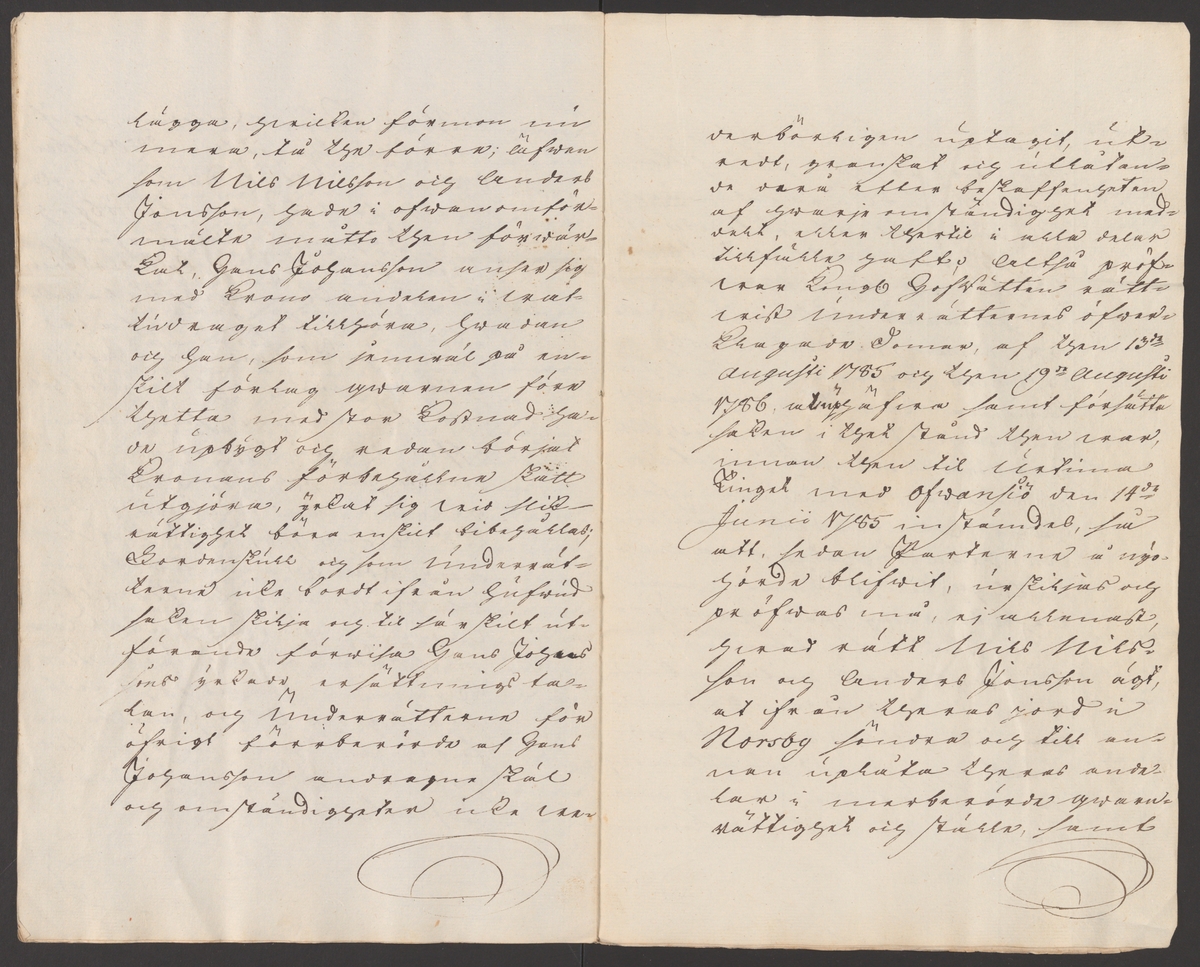 lägga, hvilken förmon nu
mera, tå the förre; låfwen
som Nils Nilsson och Anders
Jonsson, hade i ofwanomför-
mälte måtto then förwär-
kat, Hans Johansson anser sig
med Krono andelen i wat-
tudraget tillhöra, hwadan
och han, som jemwäl på en-
skilt förlag qwarnen före
thetta med stor kostnad ha-
de upbygt och redan börjat
Kronans förbehållne skatt
utgjöra, yrkat sig wid slik
rättighet böra enskilt bibehållas;
Borden skull och som Underrät-
terne icke bordt ifrån hufwud
saken skilja och til särskilt ut-
förande förwisa Hans Johans
sons yrkade ersättnings ta-
lan, och Underrätterne för
öfrigt förrberörde af Hans
Johansson andragne skäl
och omständigheter icke we-
derbörligen uptagit, ut-
redt, granskat och utlåtan-
de derå efter beskaffenheten
af hwarje omständighet med-
delt, eller thertil i alla delar
tillfälle haft; Altså pröf-
war Kongl HofRätten rätt-
wist Underrätternes öfwer-
klagade Domar, af then 13de
Augusti 1785 och then 19de Augusti
1786. at uphäfwa samt försätta
saken i thet stånd then war,
innan then til Urtima
Tinget med Ofwansjö den 14de
Junii 1785 instämdes, så
att, sedan Parterne å nyo
hörde blifwit, urskiljas och
pröfwas må, ej allenast,
hwad rätt Nils Nils-
son och Anders Jonsson ägt,
at ifrån theras jord i
Norsby söndra och till an-
nan uplåta theras ande-
lar i merberörde qwarn-
rättighet och ställe, samt